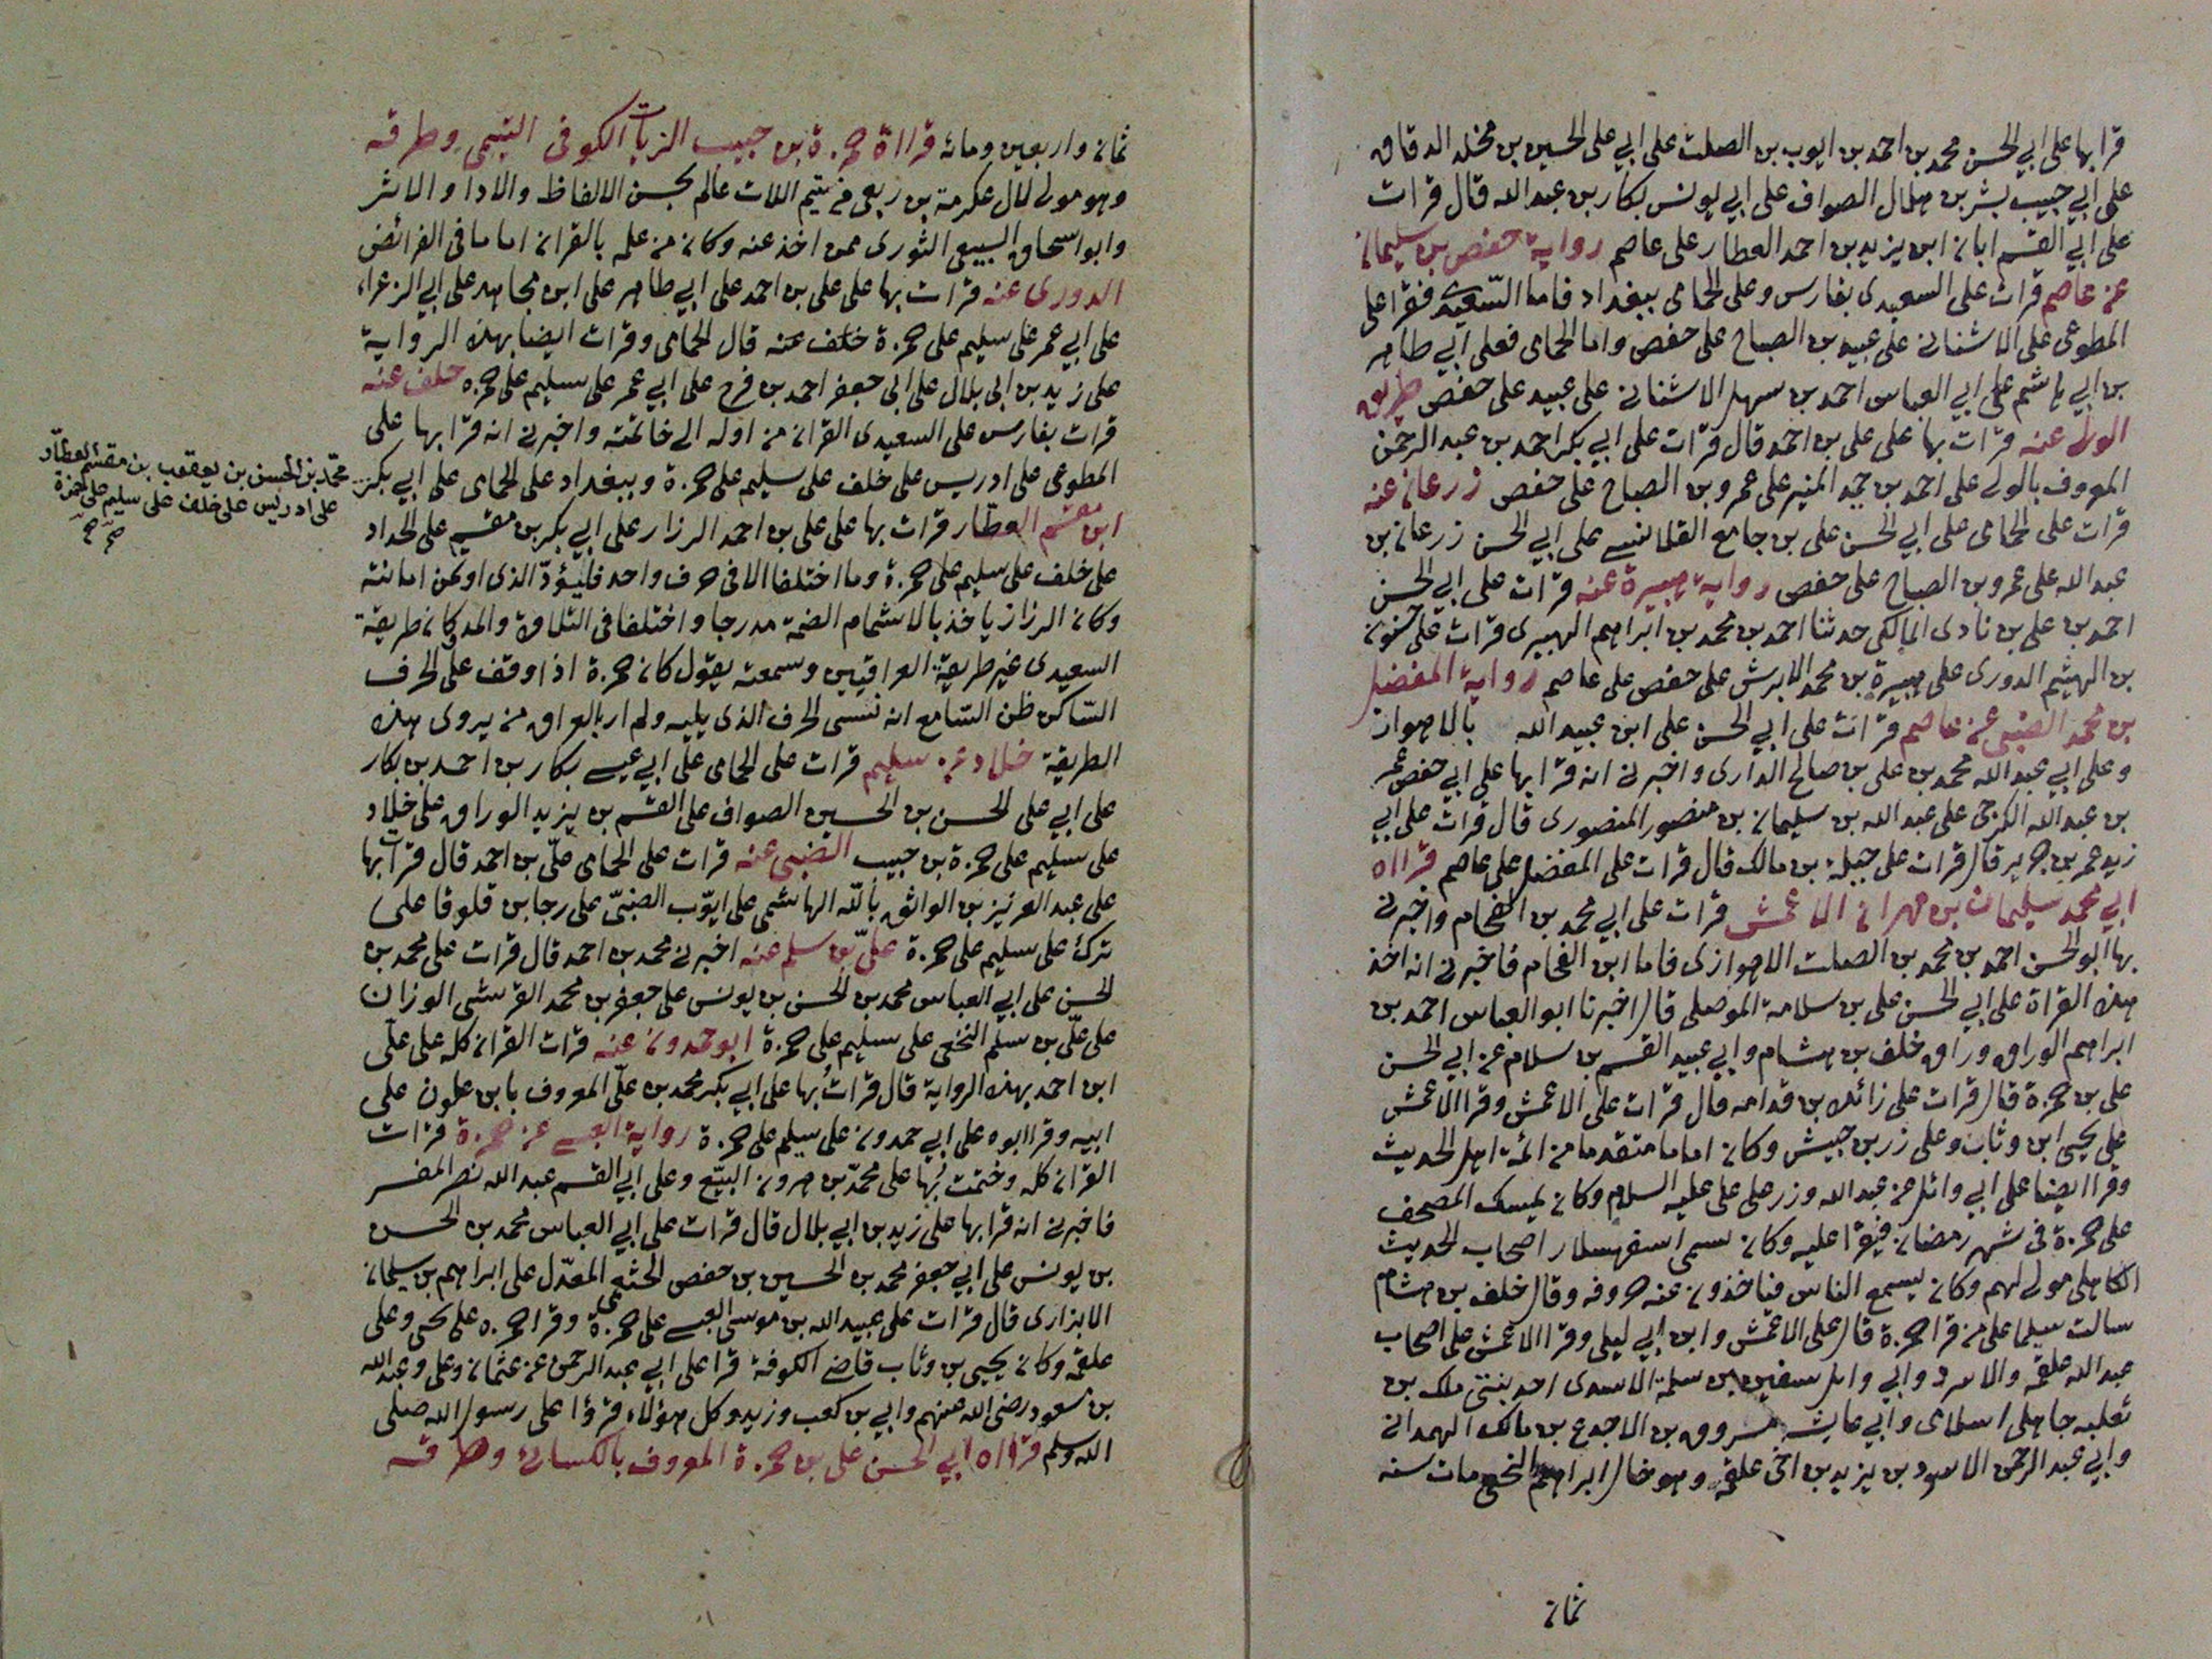 قرا بها على ابي الحسن محمد بن احمد بن ايوب بن الصلت على ابي على الحسين بن مخلد الدقاق
على ابي حبيب بشر بن هلال الصواف على ابي يونس بكار بن عبدالله قال قرات
على ابي القسم ابان ابن يزيد بن احمد العطار على عاصم رواية حفص بن سليمان
عن عاصم قرات على السعيدى بفارس وعلى الحمامى ببغداد فاما السّعيدى فقرا على
المطوعى على الاشنانى على عبيد بن الصباح على حفص واما الحمامى فعلى ابي طاهر
بن ابي هاشم على ابي العباس احمد بن سهل الاشنانى على عبيد على حفص طريق
الولى عنه قرات بها على على بن احمد قال قرات على ابي بكر احمد بن عبد الرحمن
المعروف بالولى على احمد بن حميد المنير على عمرو بن الصباح على حفص زرعان عنه
قرات على الحمامى على ابي الحسن على بن جامع القلانسى على ابي الحسن زرعان بن
عبدالله على عمرو بن الصباح على حفص رواية هبيرة عنه قرات على ابي الحسن
احمد بن على بن نادى المالكى حدثنا احمد بن محمد بن ابراهيم الهبيرى قرات على حسنون
بن الهيثم الدورى على هبيرة بن محمد الابرش على حفص على عاصم رواية المفضل
بن محمد الضبى عن عاصم قرات على ابي الحسن على ابن عبيد الله بالاهواز
وعلى ابي عبدالله محمد بن على بن صالح الدارى واخبرنى انه قرا بها على ابي حفص عمر
بن عبدالله الكرجى على عبدالله بن سليمان بن منصور المنصورى قال قرات على ابي
زيد عمر بن جرير قال قرات على جبلة بن مالك قال قرات على المفضل على عاصم قرااه
ابي محمد سليمان بن مهران الاعمش قرات على ابي محمد بن الفحام واخبرنى
بها ابو الحسن احمد بن محمد بن الصلت الاهوازى فاما ابن الفحام فاخبرنى انه اخذ
هذه القراة على ابي الحسن على بن سلامة الموصلى قال اخبرنا ابو العباس احمد بن
ابراهيم الوراق وراق خلف بن هشام وابي عبيد القسم بن سلام عن ابي الحسن
على بن حمزة قال قرات على زائدة بن قدامه قال قرات على الاعمش وقرا الاعمش
على يحيى ابن وثاب وعلى زر بن حبيش وكان اماما متقدما من ائمة اهل الحديث
وقرا ايضا على ابي وائل عن عبدالله وزر على على عليه السلام وكان يمسك المصحف
على حمزة فى شهر رمضان فيقرا عليه وكان يسمى اسفهسلار اصحاب الحديث
الكاهلى مولى لهم وكان يسمع الناس فياخذون عنه حروفه وقال خلف بن هشام
سالت سليما على من قرا حمزة قال على الاعمش وابن ابي ليلى وقرا الاعمش على اصحاب
عبدالله علقمه والاسود وابي وايل سفين بن سلمة الاسدى احد بنتى ملك بن
ثعلبه جاهلى اسلامى وابي عايشه مسروق بن الاجدع بن مالك الهمدانى
وابي عبد الرحمن الاسود بن يزيد بن اخى علقمه وهو خال ابراهيم النخعى مات سنه
ثمان
ثمان واربعين ومائة قرااة حمزة بن حبيب الزيات الكوفى التيمى وطرقه
وهو مولى لال عكرمة بن ربعى من تيم اللات عالم بحسن الالفاظ والادا والاثر
وابو اسحاق السبيعى الثورى ممن اخذ عنه وكان من علمه بالقران اماما فى الفرائض
الدورى عنه قرات بها على على بن احمد على ابي طاهر على ابن مجاهد على ابي الزعراء
على ابي عمر على سليم على حمزة خلف عنه قال الحمامى وقرات ايضا بهذه الرواية
على زيد بن ابى بلال على ابى جعفر احمد بن فرح على ابي عمر على سليم على حمزه خلف عنه
قرات بفارس على السعيدى القران من اوله الى خاتمته واخبرنى انه قرا بها على
المطوعى على ادريس على خلف على سليم على حمزة وببغداد على الحمامى على ابي بكر
محمّد بن الحسن بن يعقوب بن مقسم العطّار
على ادريس على خلف على سليم على حمزة
ابن مقسم العطّار قرات بها على على بن احمد الرزار على ابي بكر بن مقسم على الحداد
على خلف على سليم على حمزة وما اختلفا الا فى حرف واحد فليؤدّ الذى اوتمن امانته
وكان الرزاز ياخذ بالاشمام الضمة مدرجا واختلفا فى التلاوة والمد وكان طريقة
السعيدى غير طريقة العراقيين وسمعته يقول كان حمزة اذا وقف على الحرف
السّاكن ظن السّامع انه نسى الحرف الذى يليه ولم ار بالعراق من يروى هذه
الطريقة خلاد عن سليم قرات على الحمامى على ابي عيسى بكار بن احمد بن بكار
على ابي على الحسن بن الحسين الصواف على القسم بن يزيد الوراق على خلاد
على سليم على حمزة بن حبيب الضبى عنه قرات على الحمامى علّى بن احمد قال قرات بها
على عبد العزيز بن الواثق باللّه الهاشمى على ايوّب الضبّى على رجا بن قلوقا على
ترك على سليم على حمزة علىّ بن سلم عنه اخبرنى محمد بن احمد قال قرات على محمد بن
الحسن على ابي العباس محمد بن الحسن بن يونس على جعفر بن محمد القرشى الوزان
على علّى بن سلم النخعى على سليم على حمزة ابو حمدون عنه قرات القران كله على علّى
ابن احمد بهذه الرواية قال قرات بها على ابي بكر محمد بن علّى المعروف بابن علون على
ابيه وقرا ابوه على ابي حمدون على سليم على حمزة رواية العبسى عن حمزة قرات
القران كله وختمت بها على محمّد بن هرون البيّع وعلى ابي القسم عبد الله نصر المفسر
فاخبرنى انه قرا بها على زيد بن ابي بلال قال قرات على ابي العباس محمد بن الحسن
بن يونس على ابي جعفر محمد بن الحسين بن حفص الخثعمى المعدّل على ابراهيم بن سليمان
الابزارى قال قرات على عبيد الله بن موسى العبسى على حمزة وقرا حمزه على يحيى وعلى
علقمه وكان يحيى بن وثاب قاضى الكوفة قرا على ابي عبد الرحمن عن عثمان وعلى وعبدالله
بن مسعود رضى الله عنهم وابي بن كعب وزيد وكل هؤلاء قرؤا على رسول الله صلى
الله وسلم قرااه ابي الحسن على بن حمزة المعروف بالكسائى وطرقه